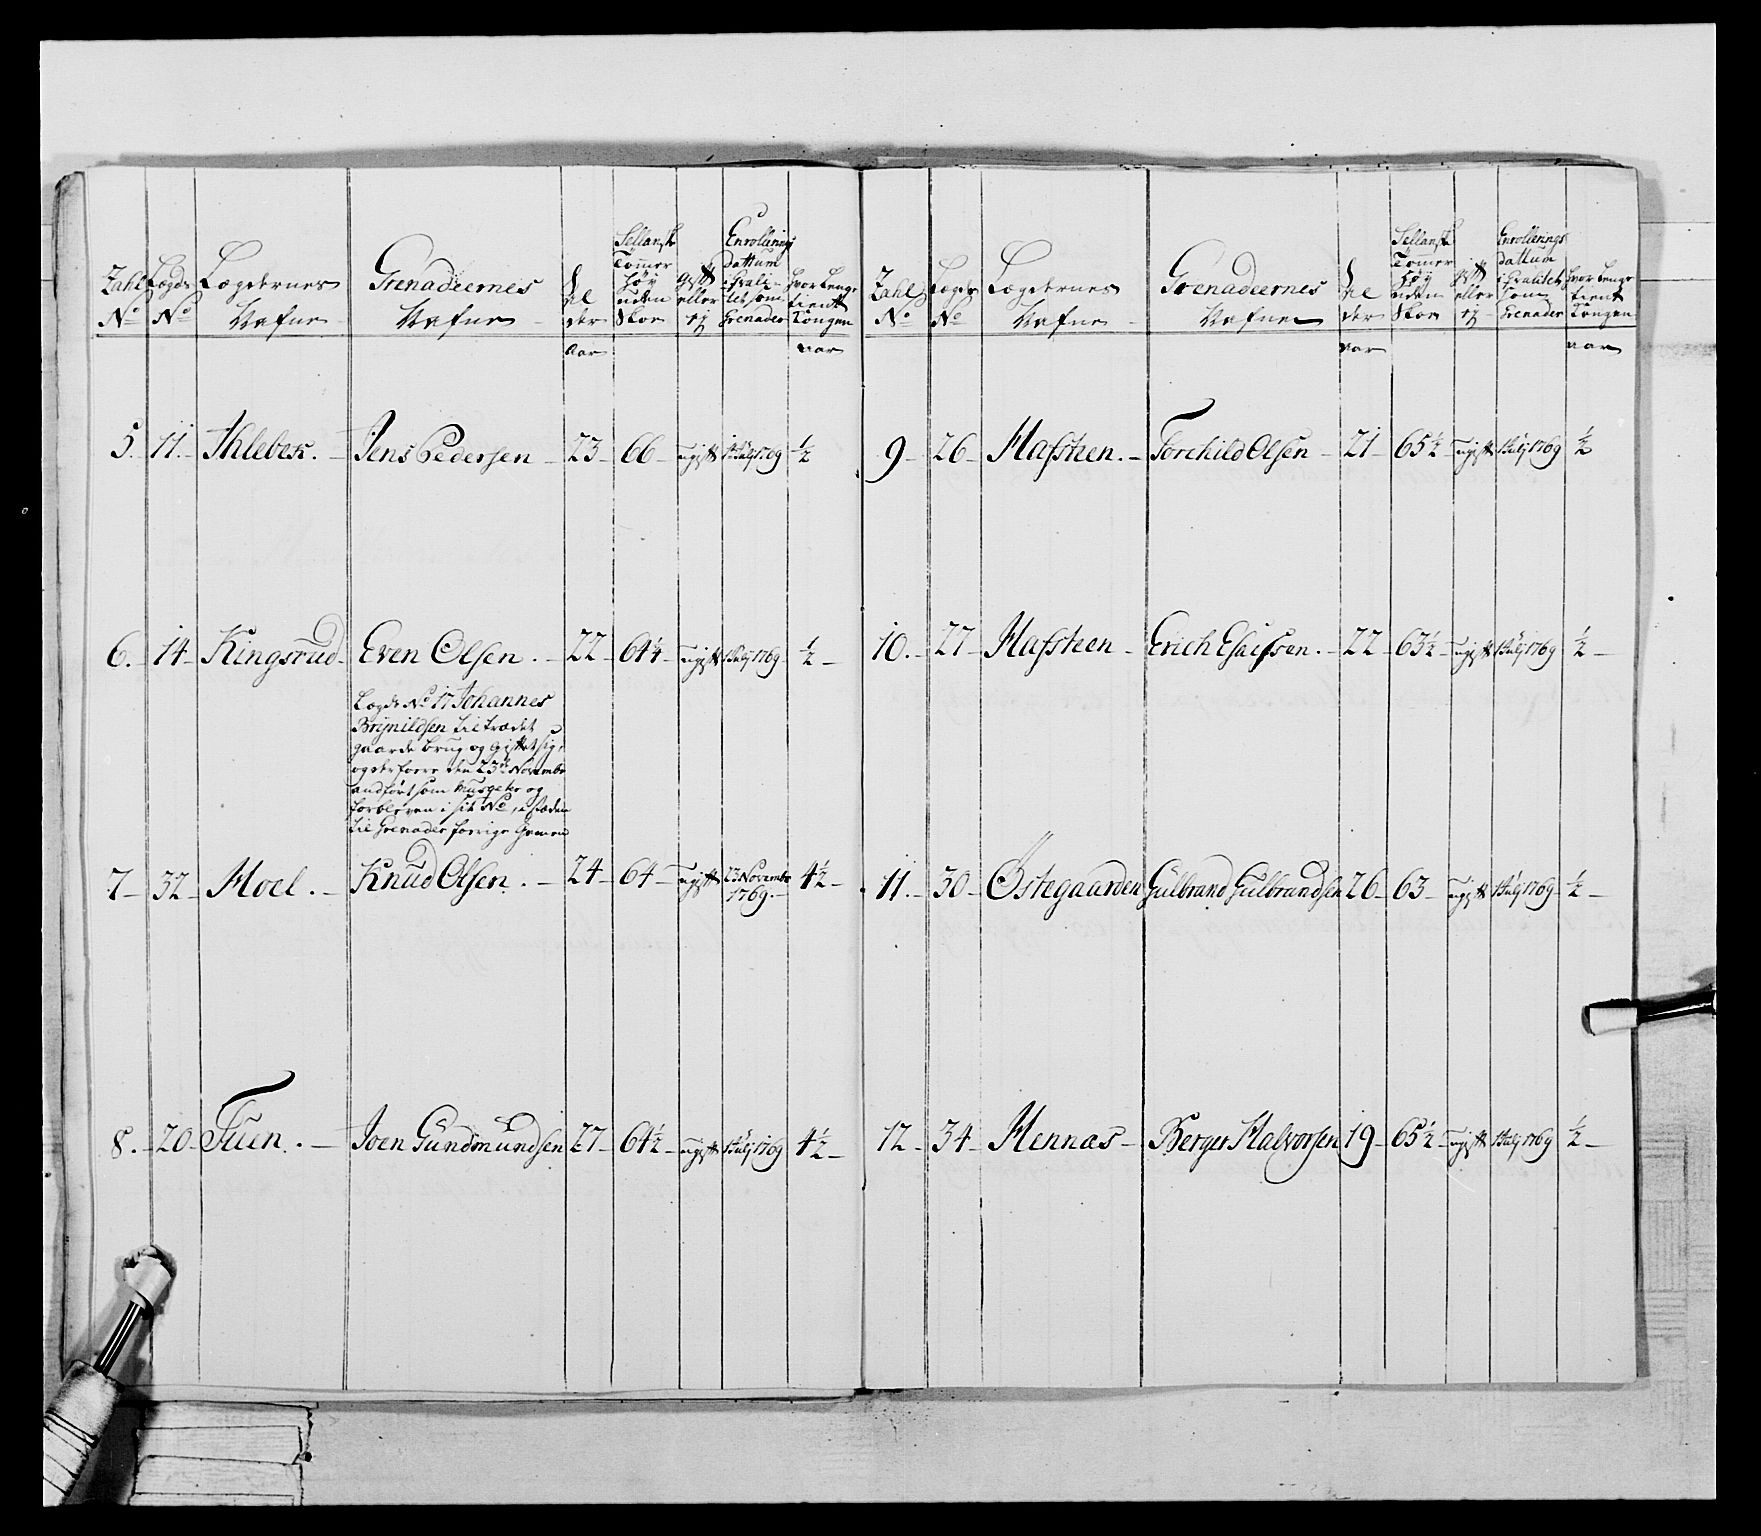 Zahl No
Lægds No
Lægdernes Nafne
Grenadeernes Nafne
Al der
Sellansk Tommer høy uden Skoe
Gift eller ej
Enrollerings dattum i Qvalitet som Grenader
Hvor længe tient Kongen
aar
aar
5. 11. Ihlebek. Jens Pedersen 23 66 ugift 1 Julj 1769 ½
6. 14 Kingsrud Even Olsen. 22 64¼ ugift 1 Julj 1769 ½
Lægds No 17 Johannes
Brynildsen tiltrædet
gaarde brug og giftet sig,
og derfore den 23de Novembr
andført som Musqeter og
forbleven i sit No, i stæden
til Grenader forrige Gemeen
7 32 Moel. Knud Olsen. 24 64 ugift 23 Novembr 1769. 4½
8. 20 Tuen. Joen Gundmundsen 27 64½ ugift 1 Julj 1769 4½
Zahl No
Lægds No
Lægdernes Nafne
Grenadeernes Nafne
Al der
Sellansk Tommer høy uden Skoe
gift eller ej
Enrollerings dattum i Qvalitet som Grenader
hvor længe tient Kongen
aar
aar
9 26 Hafsteen. Torchild Olsen 21 65½ ugift 1 Julj 1769 ½
10. 27 Hafsteen Erich Esaissen. 22 63½ ugift 1 Julj 1769 ½
11. 30 Østegaarden Gulbrand Gulbrandsen 26 63 ugift 1 Julj 1769 ½
12 34 Hennas Berger Halvorsen 19 65½ ugift 1 Julj 1769 ½